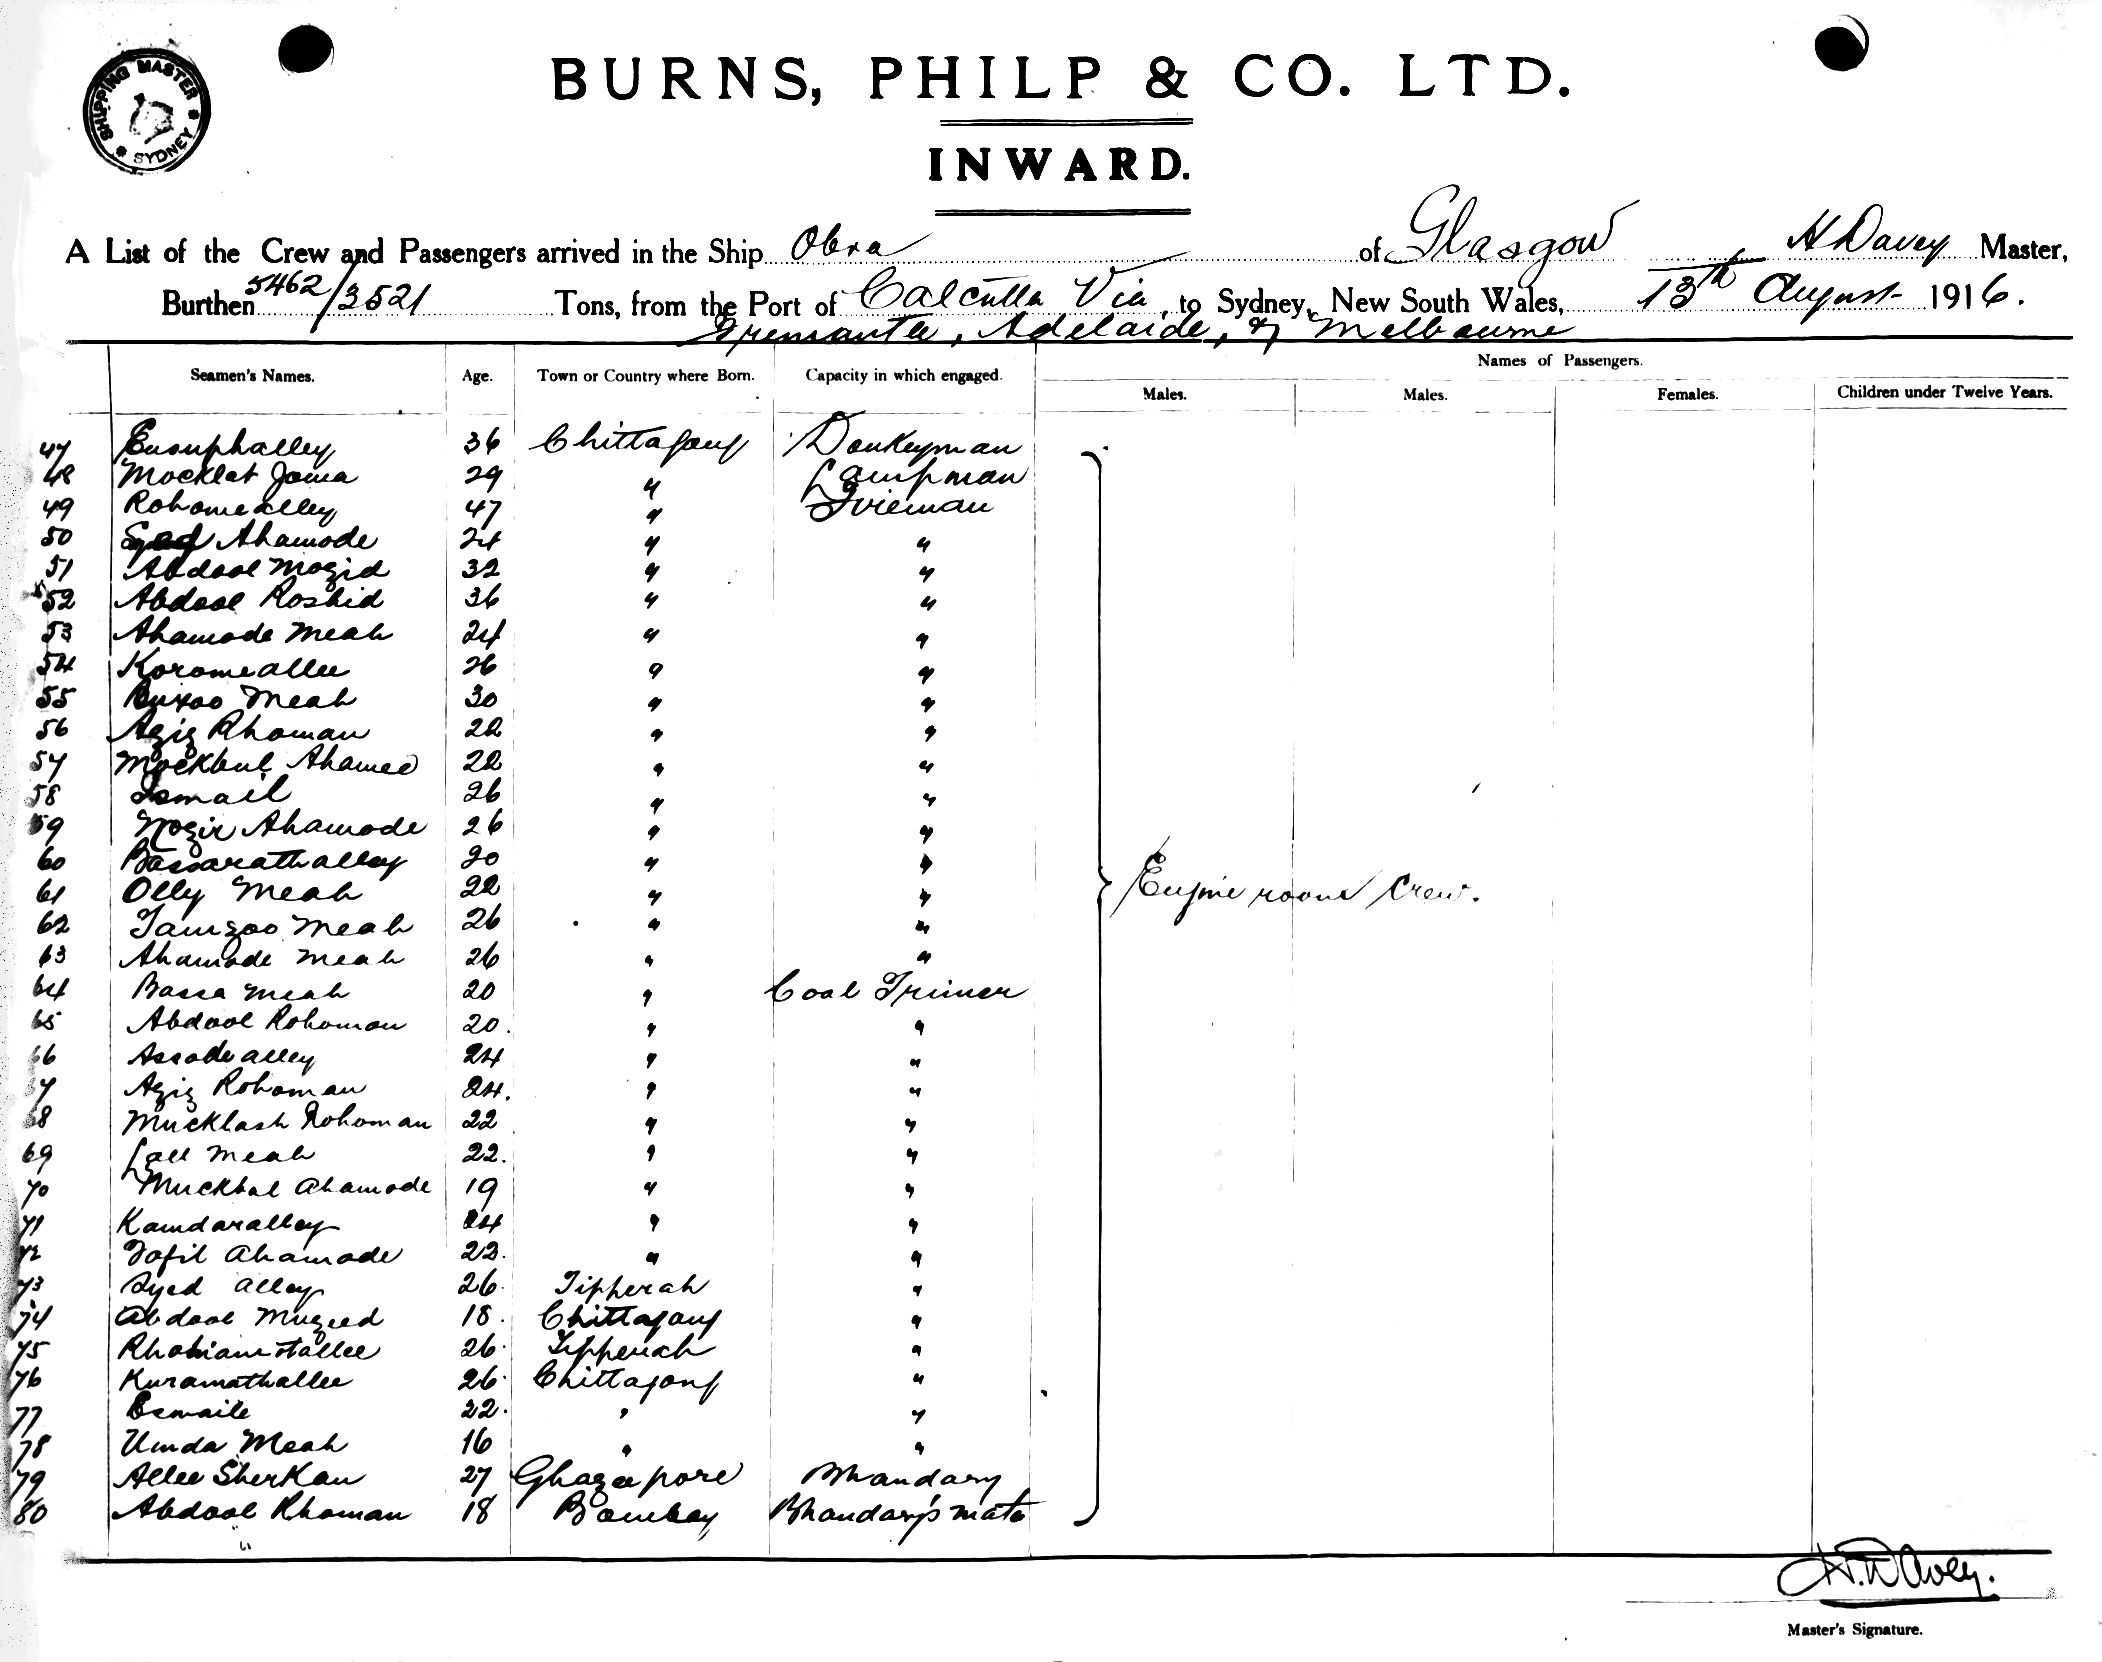 SHIPPING MASTER
SYDNEY
BURNS, PHILP & CO. LTD.
INWARD.
A List of the Crew and Passengers arrived in the Ship Obra of Glasgow H Davey Master,
Burthen 5462/3521 Tons, from the Port of Calcutta Via to Sydney, New South Wales, 13th August 1916.
Fremantle, Adelaide, & Melbourne
Names of Passengers.
Seamen's Names. Age. Town or Country where Born. Capacity in which engaged. Males. Males. Females. Children under Twelve Years.
47 Eusuphalley 36 Chittagong Donkeyman
48 Mocklat Joma 29 " Lampman
49 Rohomealley 47 " Fireman
50 Syed Ahamode 24 " "
51 Abdool Mozid 32 " "
52 Abdool Roshid 36 " "
53 Ahamode Meah 24 " "
54 Koromeallee 26 " "
55 Buxoo Meah 30 " "
56 Aziz Rhoman 22 " "
57 Mockbul Ahamed 22 " "
58 Ismail 26 " "
59 Nozir Ahamode 26 " "
60 Bassarathalley 20 " "
61 Olly Meah 22 " "
62 Tamizoo Meah 26 " "
63 Ahamode Meah 26 " "
64 Bassa Meah 20 " Coal Trimer
65 Abdool Rohoman 20. " "
66 Assadealley 24 " "
67 Aziz Rohoman 24. " "
68 Mucklash Rohoman 22 " "
69 Lall Meah 22. " "
70 Muckbal Ahamode 19 " "
71 Kamdaralley 24 " "
72 Tofil Ahamode 22. " "
73 Syed Alley 26. Tipperah "
74 Abdool Muzeed 18. Chittagong "
75 26. Tipperah "
76 Kuramathallee 26. Chittagong "
77 Esmaile 22. " "
78 Umda Meah 16 " "
79 Allee Sherkan 27 Ghazeepore Bhandary
80 Abdool Rhoman 18 Bombay Bhandary's mate
Engine room Crew.
H. Davey.
Master's Signature.